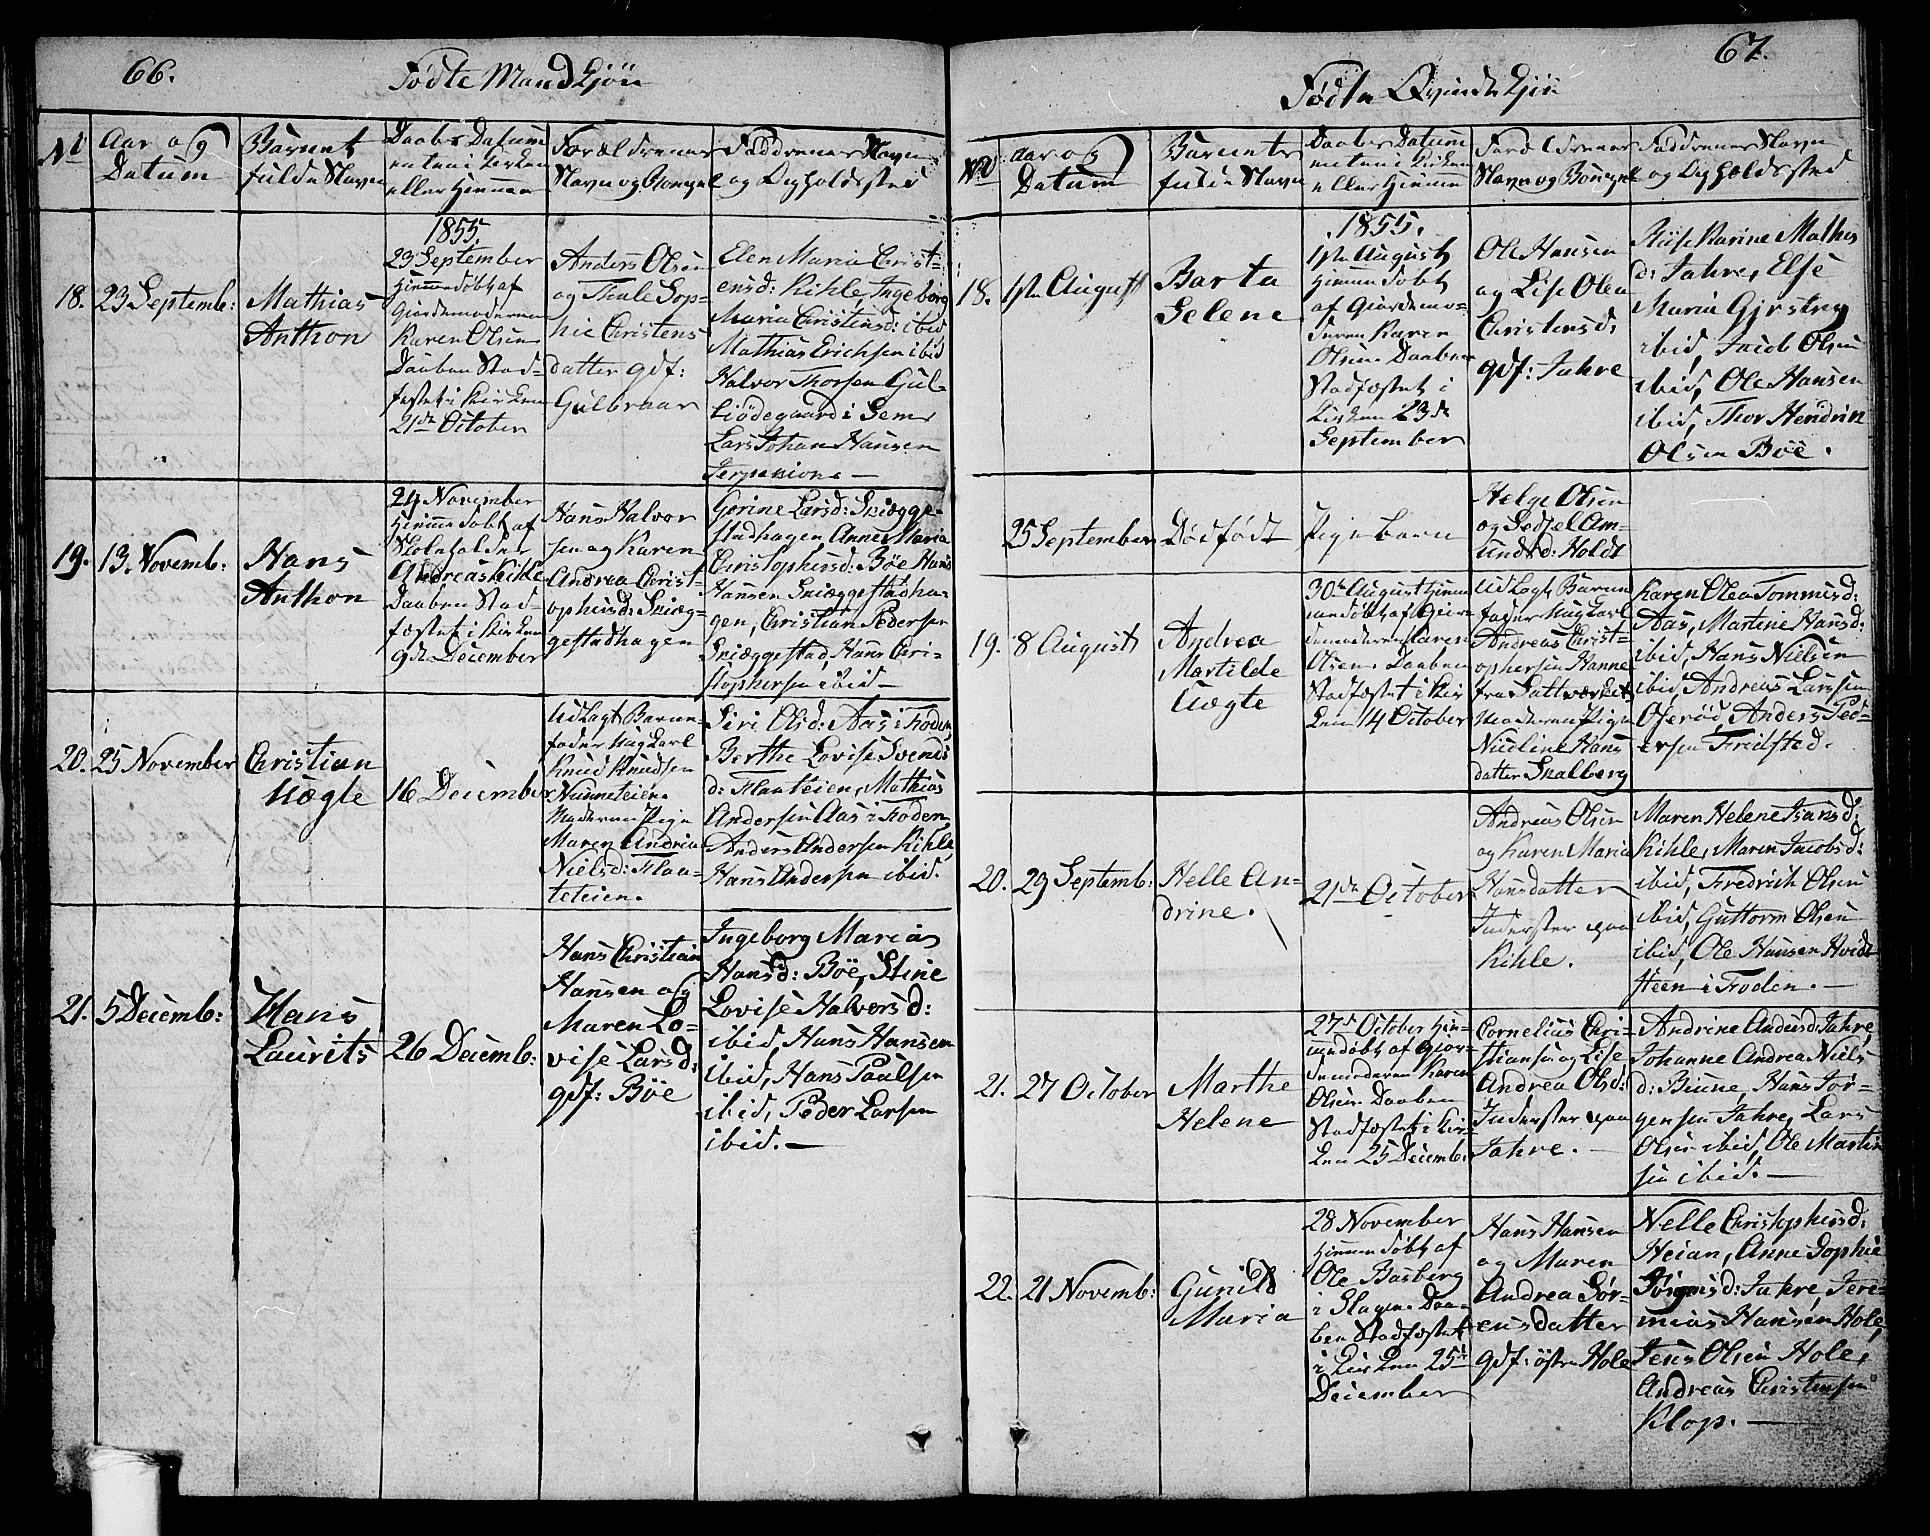 66.
Fødte Mandkjøn
No
Aar og
Datum
Barnets
fulde Navn
Daabs Datum
enten i Kirken
eller Hjemme
Forældrenes
Navn og Bopæl
Faddrenes Navn
og Opholdssted
18.
23 Septemb:
Mathias
Anthon
1855
23 September
hjemmedøbt af
Gjordemoderen
Karen Olsen
Daaben Stad-
fæstet i Kirken
21de October
Anders Olsen
og Thale Sop-
hie Christens
datter gdf:
Gulbraar
Elen Maria Christ-
ensd: Kihle, Ingeborg
Maria Christensd: ibid
Mathias Erichsen ibid
Halvor Thorsen Gul-
biødegaard i Sem
Lars Johan Hansen
19.
13. Novemb:
Hans
Anthon
24 November
hjemmedøbt af
Skoleholder
Andreas Kihle
Daaben Stad-
fæstet i Kirken
9de December
Hans Halvor
sen og Karen
Andrea Christ-
ophersd: Sniæg-
gestadhagen
Gorine Larsd: Sniægge-
stadhagen Anne Maria
Christophersd: Bøe Hans
Hansen Sniæggestadha-
gen, Christian Pedersen
Sniæggestad, Hans Chri-
stophersen ibid —
20.
25 November
Christian
Uægte
16 December
Udlagt Barne-
fader Ungkarl
Knud Knudsen
Nunneteien.
Moderen Pige
Maren Andria
Nielsd: Flaa-
teteien.
Siri Olsd: Aas i Foden
Berthe Lovise Svends
d: Flaateien, Mathias
Andersen Aas i Foden,
Anders Andersen Kihle,
Hans Andersen ibid.
21.
5 Decemb:
Hans
Laurits
26 Decemb:
Hans Christian
Hansen og
Maren Lo-
vise Larsd:
gdf: Bøe
Ingeborg Maria
Hansd: Bøe, Stine
Lovise Halvorsd:
ibid, Hans Hansen
ibid, Hans Paulsen
ibid, Peder Larsen
ibid. —
67.
Fødte Qvindekjøn
No
Aar og
Datum
Barnets
fulde Navn
Daabs Datum
enten i Kirken
eller Hjemme
Forældrenes
Navn og Bopæl
Faddrenes Navn
og Opholdssted
18.
1ste August
Barta
Selene
.1855.
1ste August
hjemmedøbt
af Gjordemo-
deren Karen
Olsen. Daaben
Stadfæstet i
Kirken 23de
September
Ole Hansen
og Lise Olea
Christensd:
gdf: Jahre
Riise Karine Mathis
d: Jahre, Else
Maria
ibid, Jacob Olsen
ibid, Ole Hansen
ibid, Thor Hendrik
Olsen Bøe.
25 September
Dødfødt
Pigebarn
Helge Olsen
og Sedsel Am-
undsd: Holdt
19.
8 August
Andrea
Martilde
Uægte
30te August hjem
medøbt af Gjor-
demoderen Karen
Olsen. Daaben
Stadfæstet i Kir
ken 14 October
Udlagt Barne
fader Ungkarl
Andreas Christ-
ophersen Hanne
fra Saltværket
Moderen Pige
Nicoline Hans
datter Snalberg
Karen Olea Tommesd:
Aas, Martine Hansd:
ibid, Hans Nielsen
ibid, Andreas Larssen
Oserød, Anders Ped-
ersen Fredsted.
20.
29 Septemb:
Helle An-
drine.
21de October
Andreas Olsen
og Karen Maria
Hansdatter
Inderster paa
Kihle.
Maren Helene Isansd:
Kihle, Maren Jacobsd:
ibid, Fredrich Olsen
ibid, Guttorm Olsen
ibid, Ole Hansen Hvidt
steen i Foden. —
21.
27 October
Marthe
Helene
27de October hjem-
medøbt af Gjor-
demoderen Karen
Olsen. Daaben
Stadfæstet i Kir-
ken 25 Decemb:
Cornelius Chri-
stiansen og Lise
Andrea Olsd:
Inderster paa
Jahre. —
Andrine Andersd: Jahre,
Johanne Andrea Niels
d: Biune, Hans Jør-
gensen Jahre, Lars
Olsen ibid, Ole Martin
sen ibid. —
22.
21 Novemb:
Gunild
Maria
28 November
hjemmedøbt af
Ole Basberg
i Slagen. Daa-
ben Stadfæstet
i Kirken 25de
December
Hans Hansen
og Maren
Andrea Sør-
ensdatter
gdf: østre Hole
Nelle Christophersd:
Heian, Anne Sophie
Jørgensd: Jahre, Jere-
mias Hansen Hole,
Jens Olsen Hole,
Andreas Christensen
Klop. —